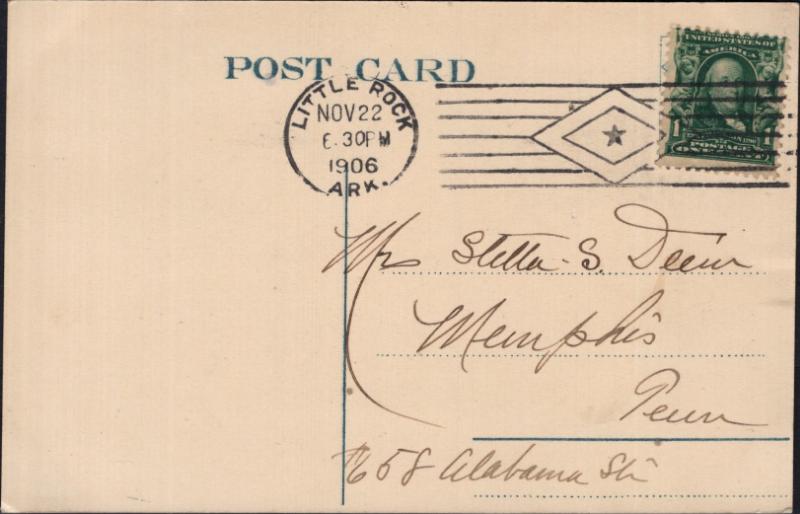 POST CARD
LITTLE ROCK
NOV 22
6 30 PM
1906
ARK.
UNITED STATES OF
AMERICA
1 1
POSTAGE
ONE CENT
Mrs Stella S.
Memphis
Tenn
658 Alabama St